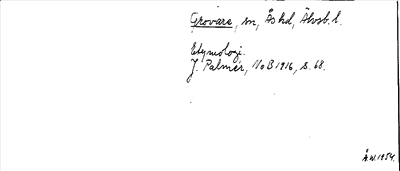 Grovare, m, Åskd, Älvsb. l.
Etymologi.
J. Palmér, NoB 1916, s. 68.
Å W. 1954.